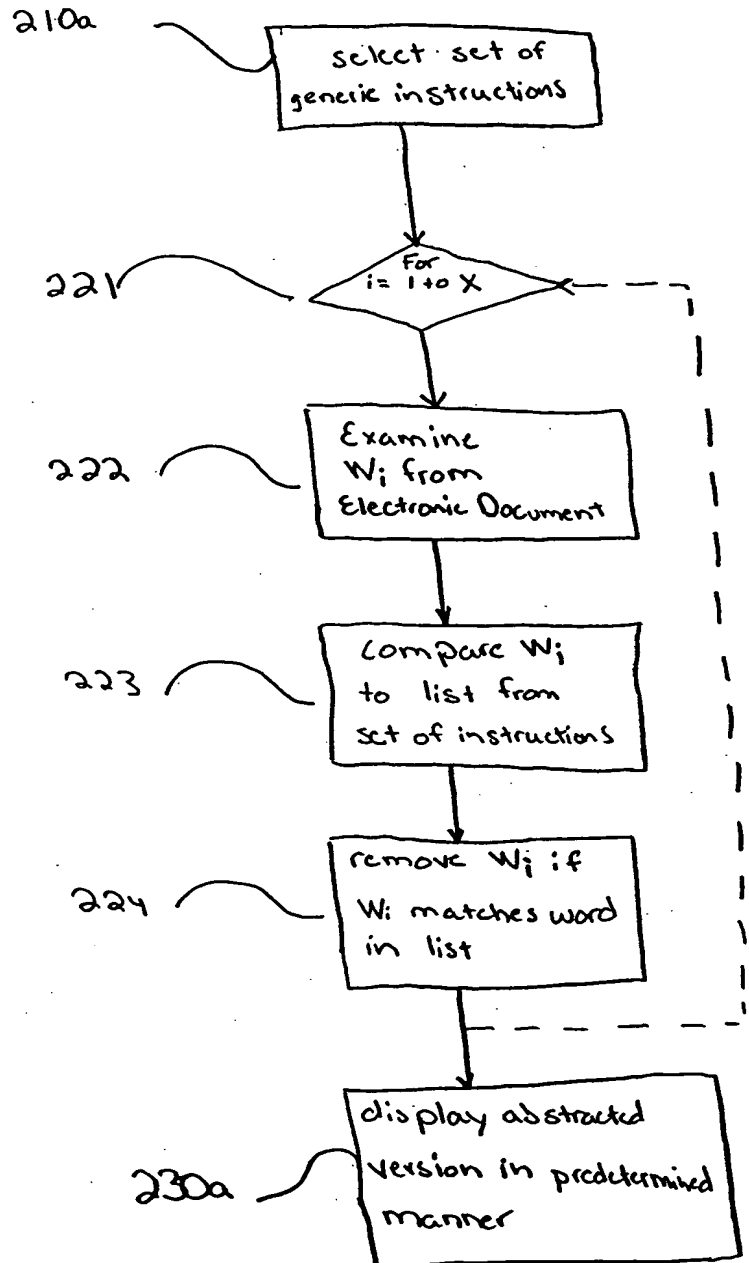 210a
select set of
generic instructions
221
For
i= 1 to X
222
Examine
Wi from
Electronic Document
223
compare Wi
to list from
set of instructions
224
remove Wi if
Wi matches word
in list
230a
display abstracted
version in predetermined
manner